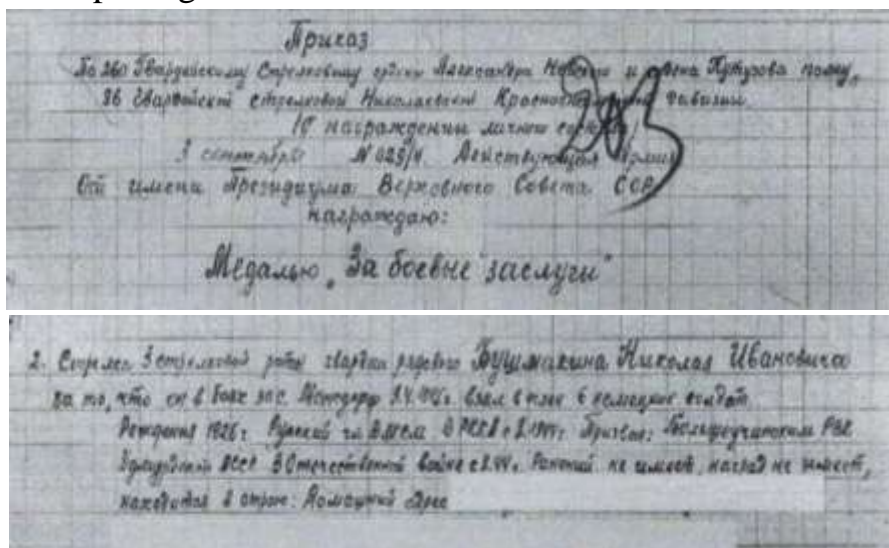 Приказ
По 260 Гвардейскому Стрелковому ордена Александра Невского и ордена Кутузова полку,
86 Гвардейской стрелковой Николаевской Краснознаменной дивизии
/О награждении личного состава/
3 сентября N 029/н Действующая Армия
От имени Президиума Верховного Совета ССР
награждаю:
Медалью „За боевые заслуги"
2. Стрелка 3 стрелковой роты гвардии рядового Бушмакина Николая Ивановича
за то, что он в боях за с. взял в плен 6 немецких солдат.
Рождения 1926г. Русский чл. ВЛКСМ. В РККА с Призван: Большеучинским РВК
Удмуртской АССР В Отечественной войне с Ранений не имеет, наград не имеет,
находится в строю: Домашний адрес